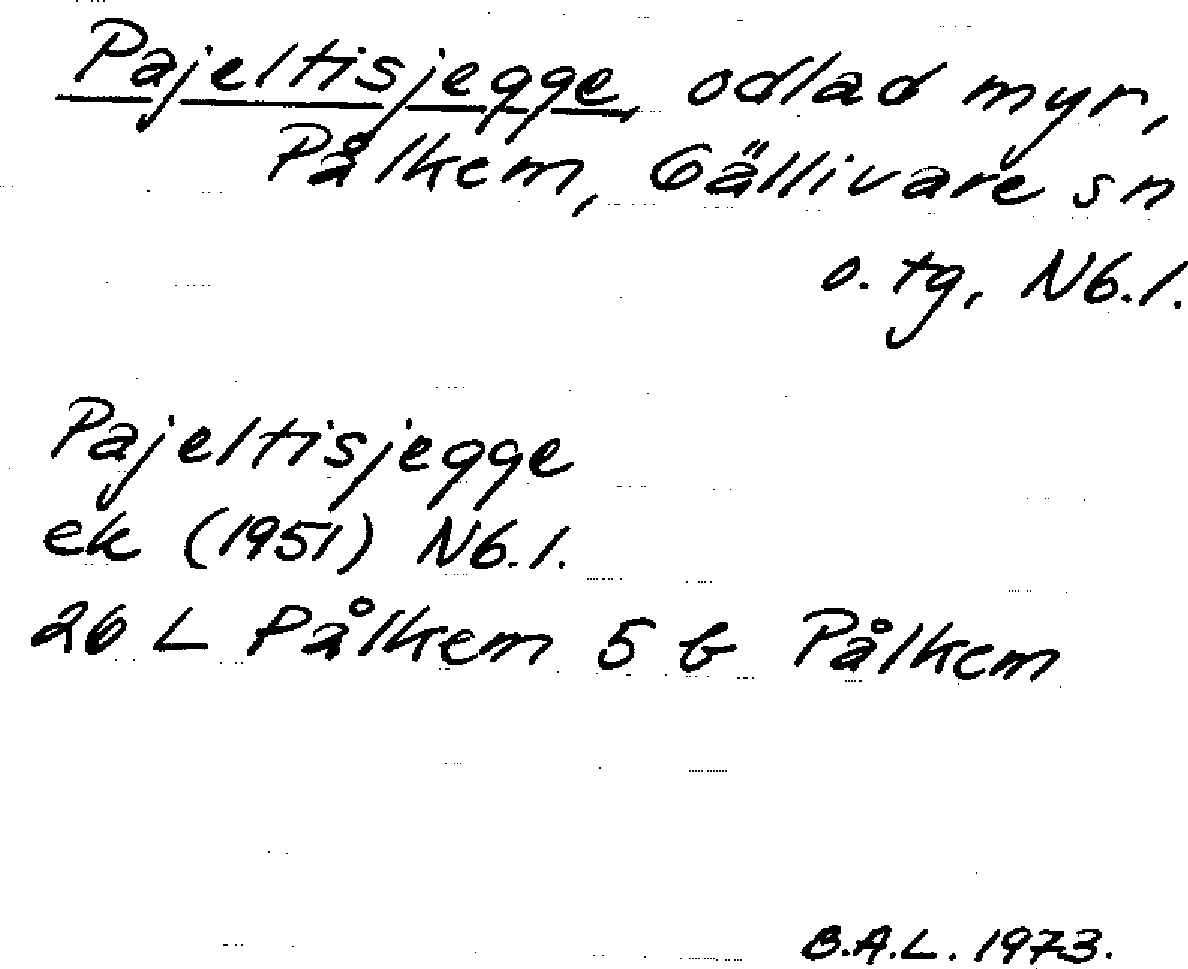 Pajeltisjegge, odlad myr,
Pålkem, Gällivare sn
o. tg, Nb.l.
Pajeltisjegge
ek (1951) Nb.l.
26 L Pålkem 5 b Pålkem
B.A.L. 1973.